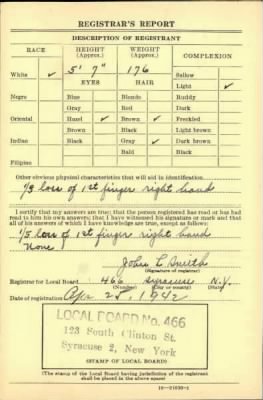 REGISTRAR'S REPORT
DESCRIPTION OF REGISTRANT
RACE HEIGHT (Approx.) WEIGHT (Approx.) COMPLEXION
5' 7" 176
White ✓ EYES HAIR Sallow
Light ✓
Negro Blue Blonde Ruddy
Gray Red Dark
Oriental Hazel ✓ Brown Freckled
Brown Black Light brown
Indian Black Gray ✓ Dark brown
Bald Black
Filipino
Other obvious physical characteristics that will aid in identification
1/3 loss of 1st finger right hand
I certify that my answers are true; that the person registered has read or has had
read to him his own answers; that I have witnessed his signature or mark and that
all of his answers of which I have knowledge are true, except as follows:
1/5 loss of 1st finger right hand
None
John L Smith
(Signature of registrar)
Registrar for Local Board 466 Syracuse N.Y.
Date of registration Apr 25, 1942
LOCAL BOARD No. 466
123 South Clinton St.
Syracuse 2, New York
(STAMP OF LOCAL BOARD)
(The stamp of the Local Board having jurisdiction of the registrant
shall be placed in the above space)